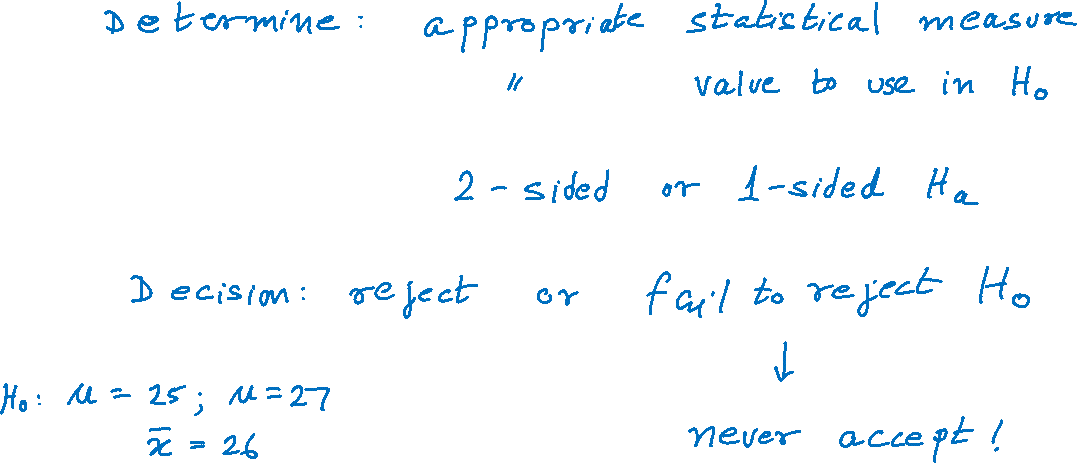 Determine: appropriate statistical measure
" value to use in H₀
2-sided or 1-sided Hₐ
Decision: reject or fail to reject H₀
↓
H₀: μ = 25; μ = 27
x̄ = 26 never accept!